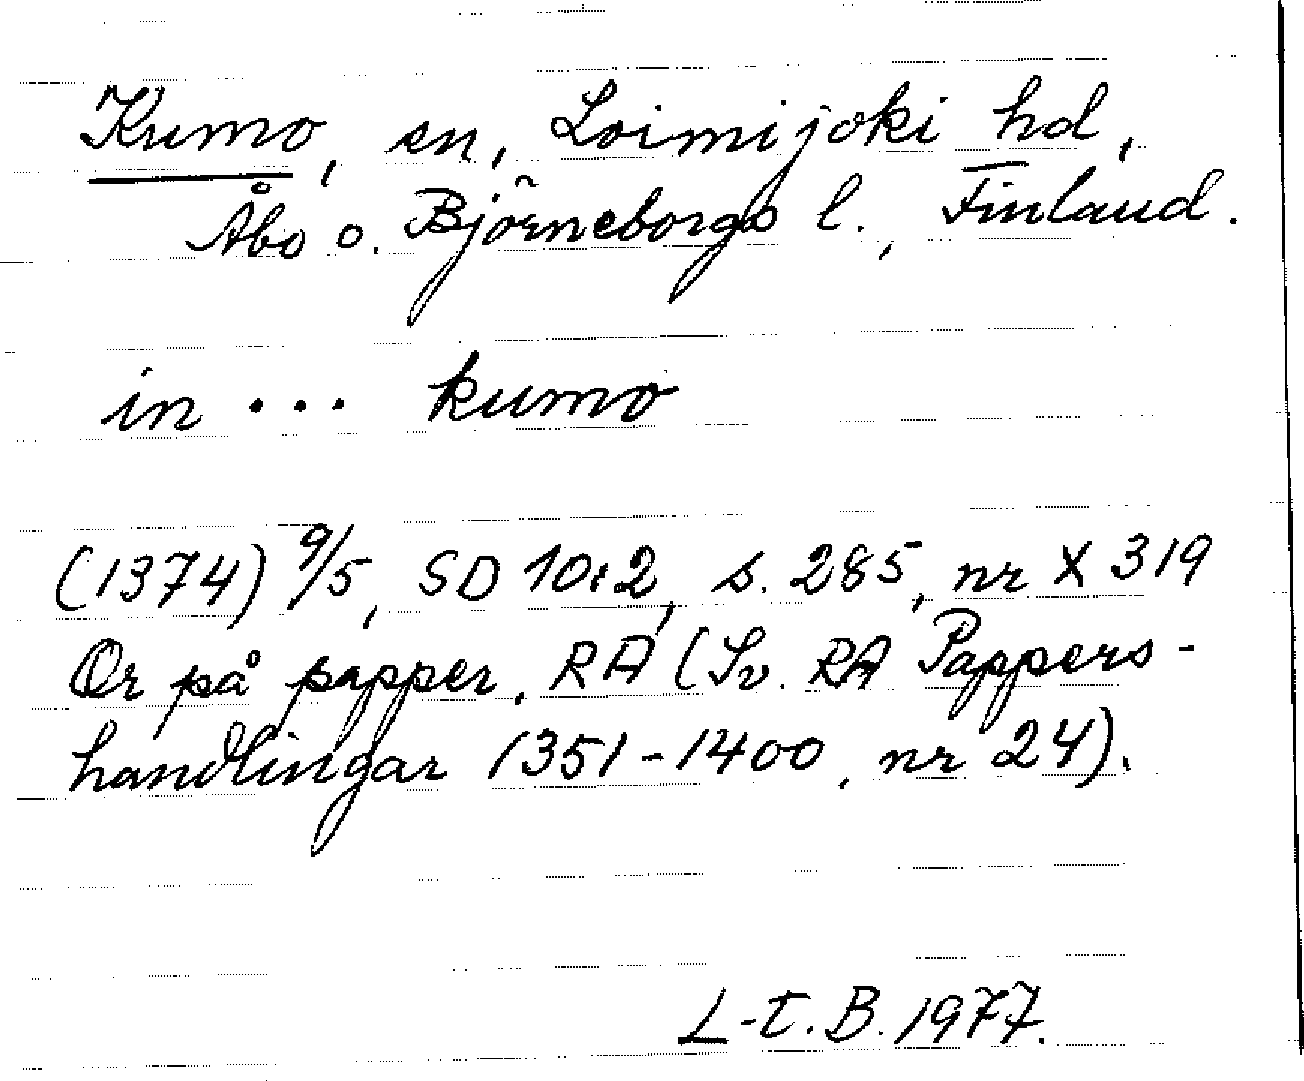 Kumo, sn, Loimijoki hd,
Åbo o. Björneborgs l., Finland.
in ... kumo
(1374) 9/5, SD 10:2, s. 285, nr X 319
Or på papper, RA (Sv. RA Pappers-
handlingar 1351-1400, nr 24).
L-t. B. 1977.